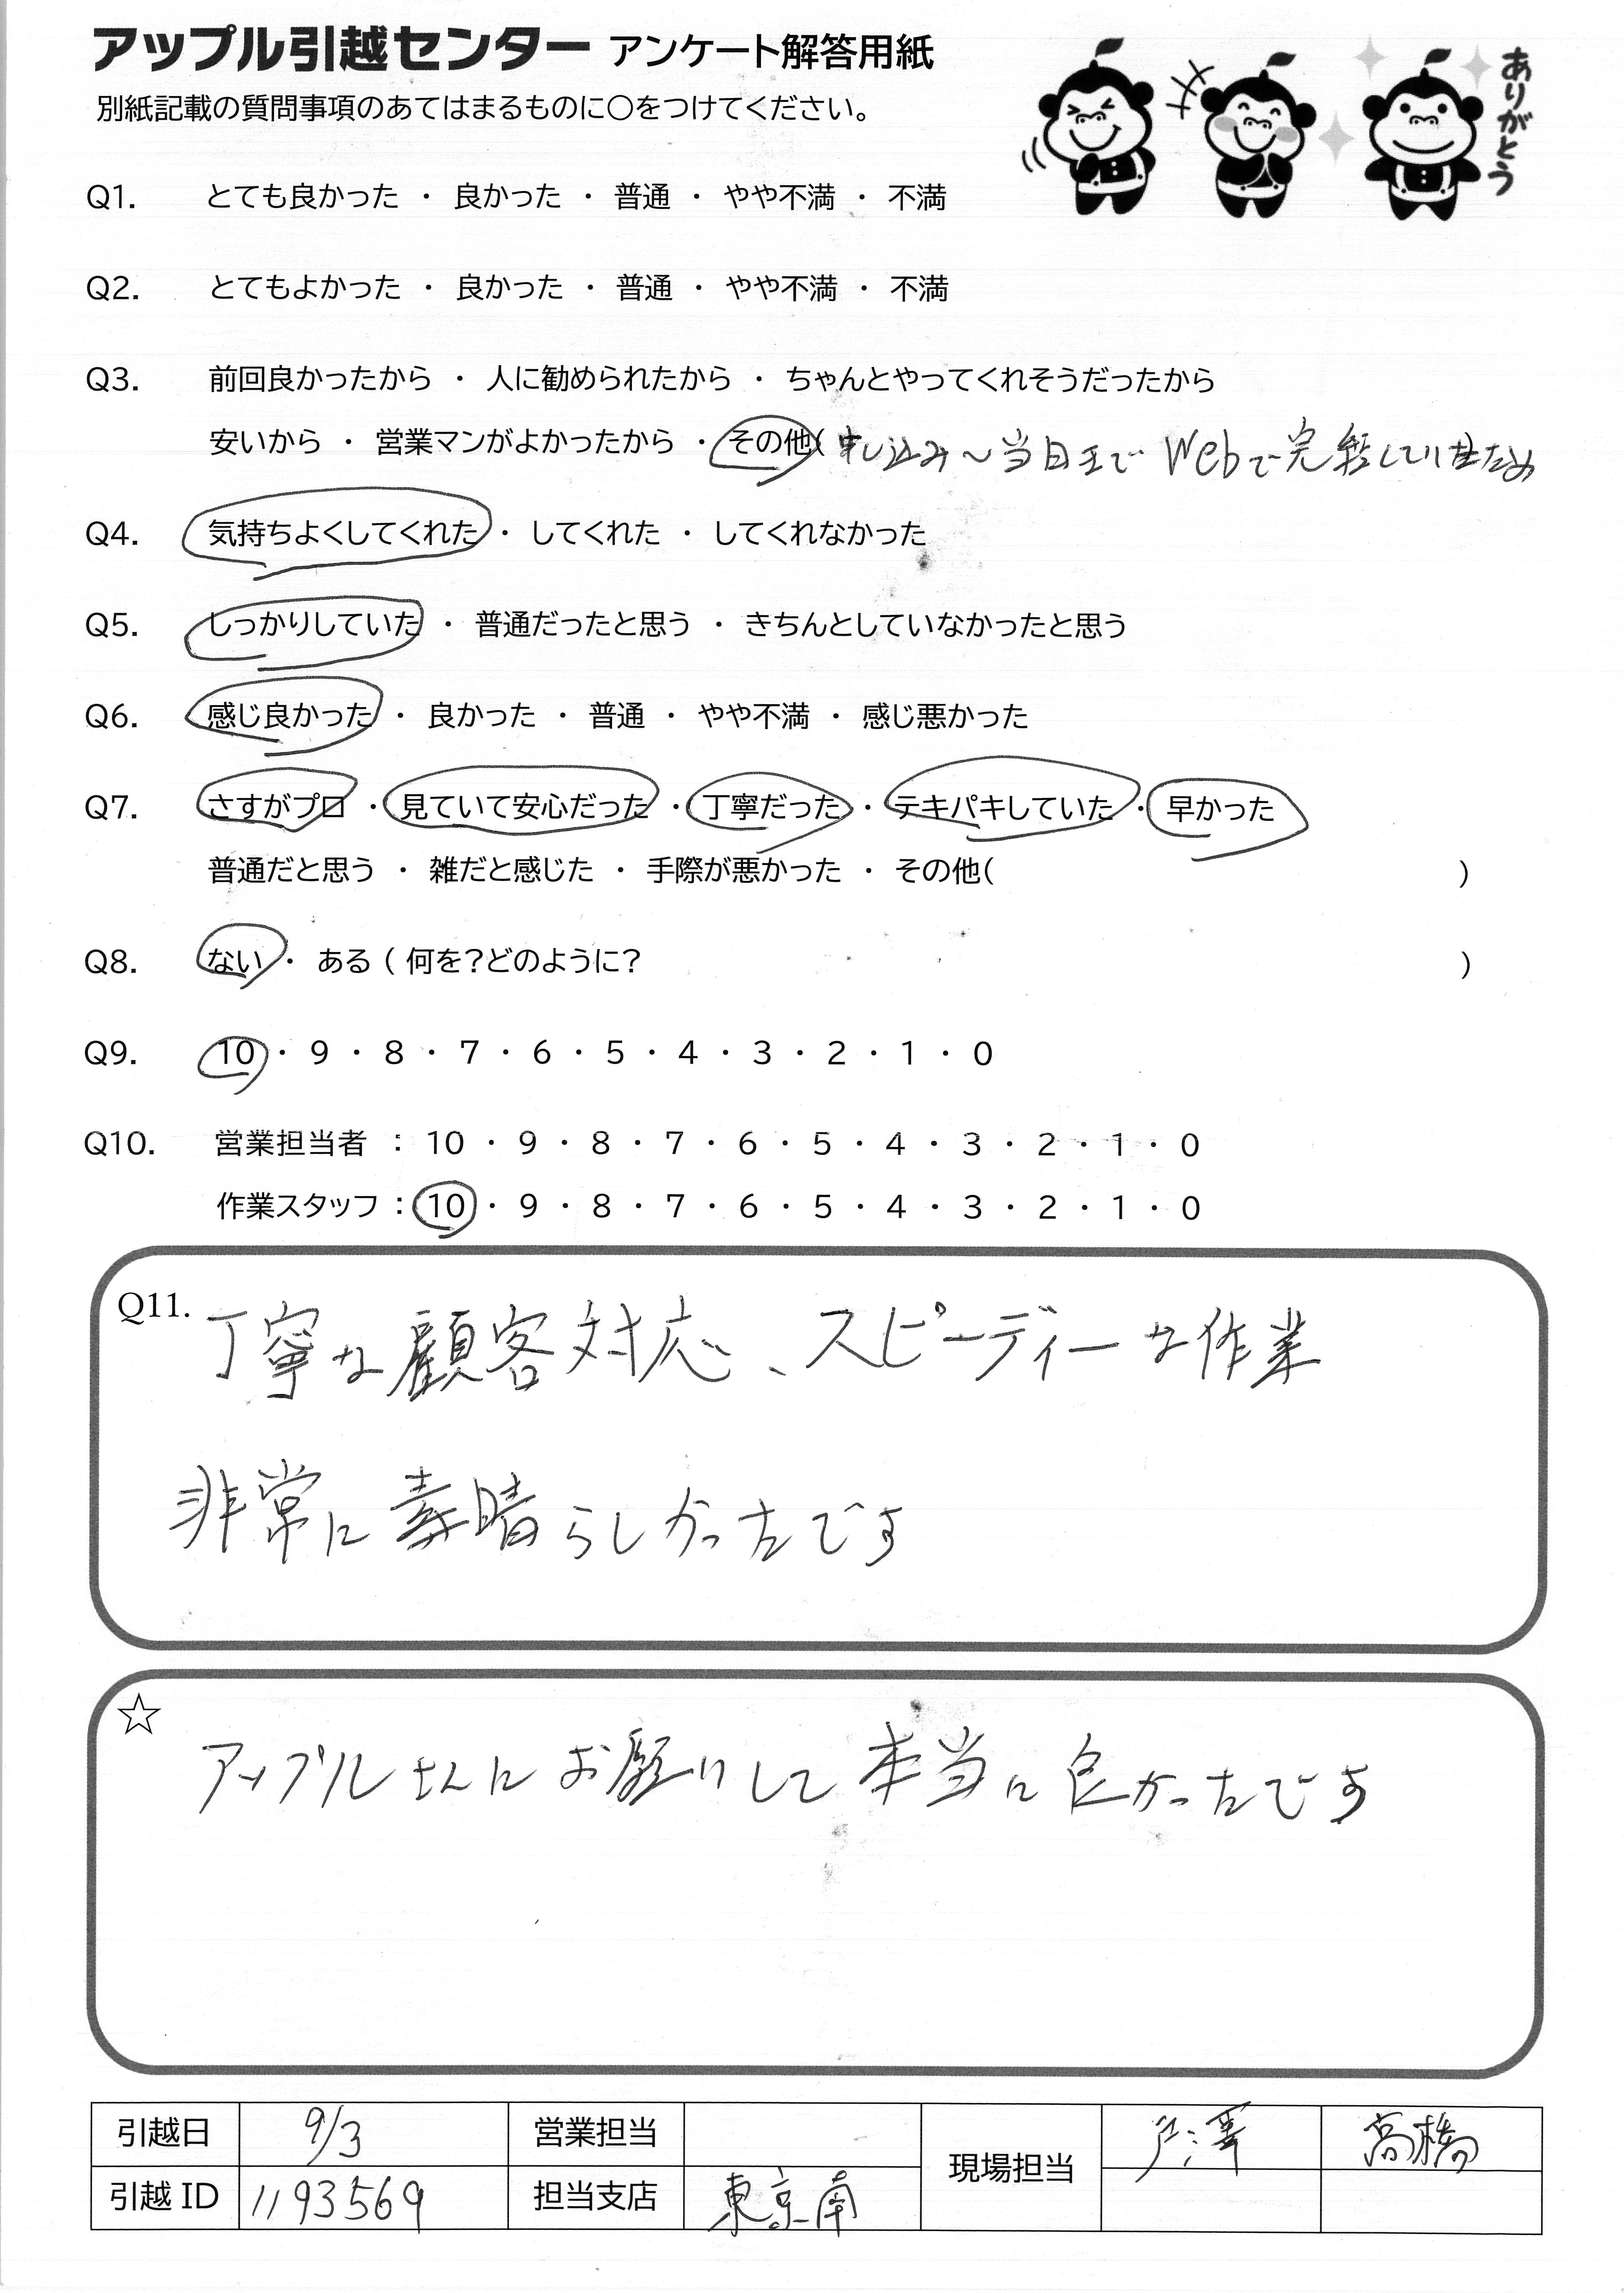 アップル引越センター アンケート解答用紙
別紙記載の質問事項のあてはまるものに○をつけてください。
ありがとう
Q1. とても良かった ・ 良かった ・ 普通 ・ やや不満 ・ 不満
Q2. とてもよかった ・ 良かった ・ 普通 ・ やや不満 ・ 不満
Q3. 前回良かったから ・ 人に勧められたから ・ ちゃんとやってくれそうだったから
安いから ・ 営業マンがよかったから ・ その他( 申し込み～当日まで Webで完結していたため
Q4. 気持ちよくしてくれた ・ してくれた ・ してくれなかった
Q5. しっかりしていた ・ 普通だったと思う ・ きちんとしていなかったと思う
Q6. 感じ良かった ・ 良かった ・ 普通 ・ やや不満 ・ 感じ悪かった
Q7. さすがプロ ・ 見ていて安心だった ・ 丁寧だった ・ テキパキしていた ・ 早かった
普通だと思う ・ 雑だと感じた ・ 手際が悪かった ・ その他( )
Q8. ない ・ ある ( 何を?どのように? )
Q9. 10 ・ 9 ・ 8 ・ 7 ・ 6 ・ 5 ・ 4 ・ 3 ・ 2 ・ 1 ・ 0
Q10. 営業担当者 : 10 ・ 9 ・ 8 ・ 7 ・ 6 ・ 5 ・ 4 ・ 3 ・ 2 ・ 1 ・ 0
作業スタッフ : 10 ・ 9 ・ 8 ・ 7 ・ 6 ・ 5 ・ 4 ・ 3 ・ 2 ・ 1 ・ 0
Q11. 丁寧な顧客対応、スピーディーな作業
非常に素晴らしかったです
☆ アップルさんにお願いして本当に良かったです
引越日 9/3 営業担当 現場担当 戸澤 高橋
引越 ID 1193569 担当支店 東京南